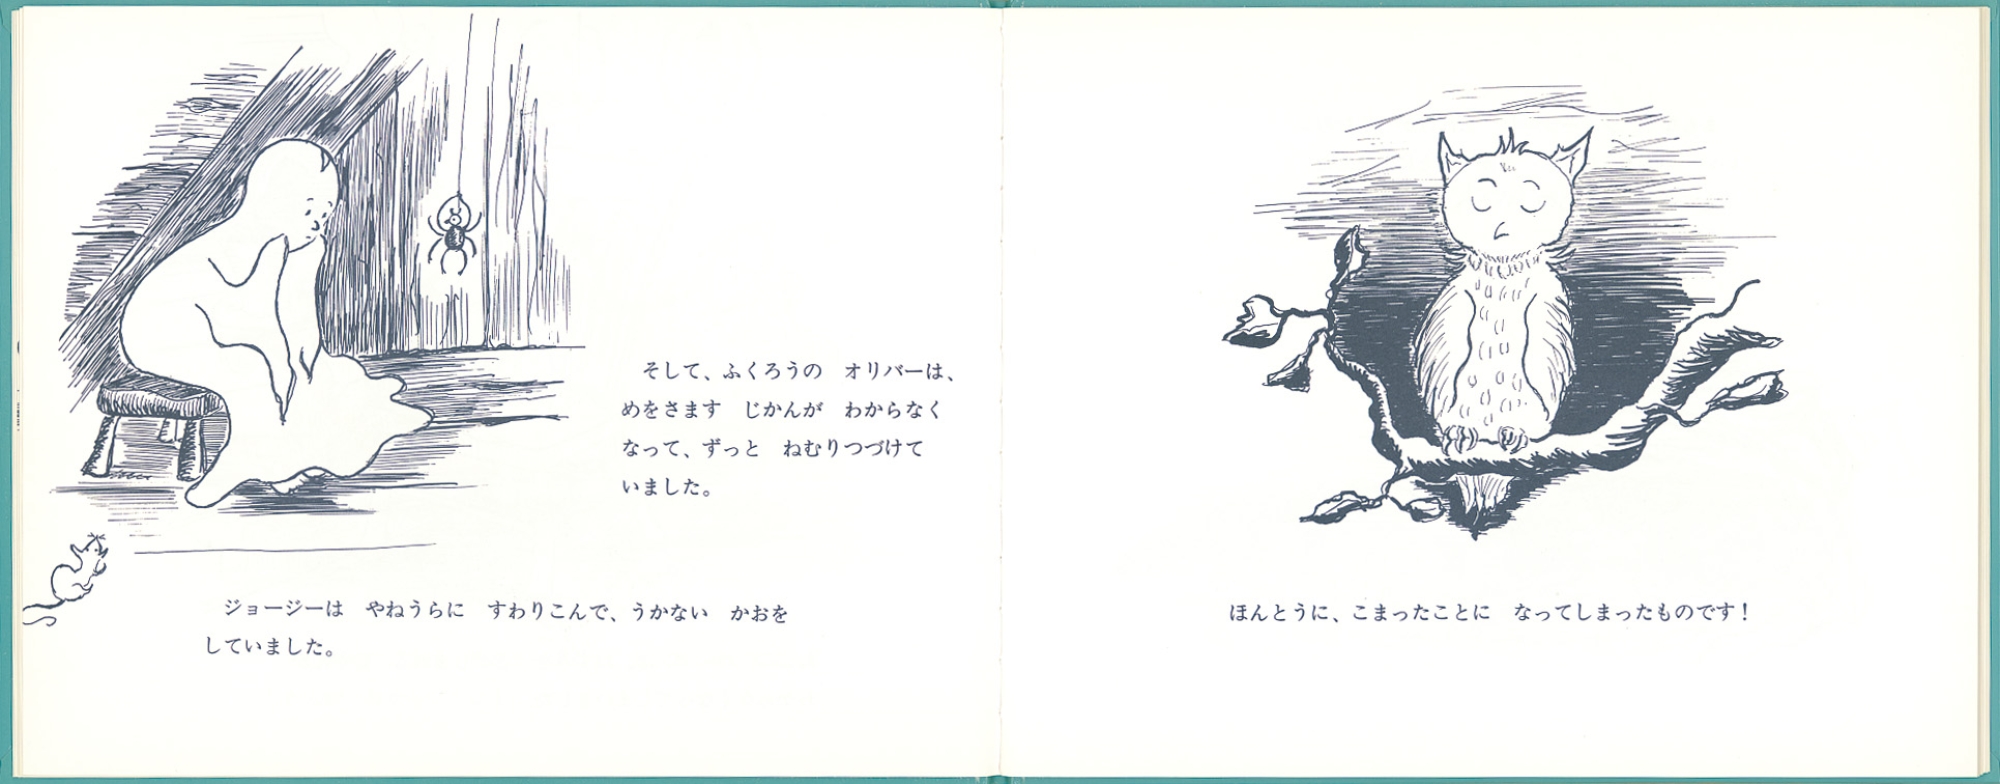 そして、ふくろうの　オリバーは、
めをさます　じかんが　わからなく
なって、ずっと　ねむりつづけて
いました。
ジョージーは　やねうらに　すわりこんで、うかない　かおを
していました。
ほんとうに、こまったことに　なってしまったものです！